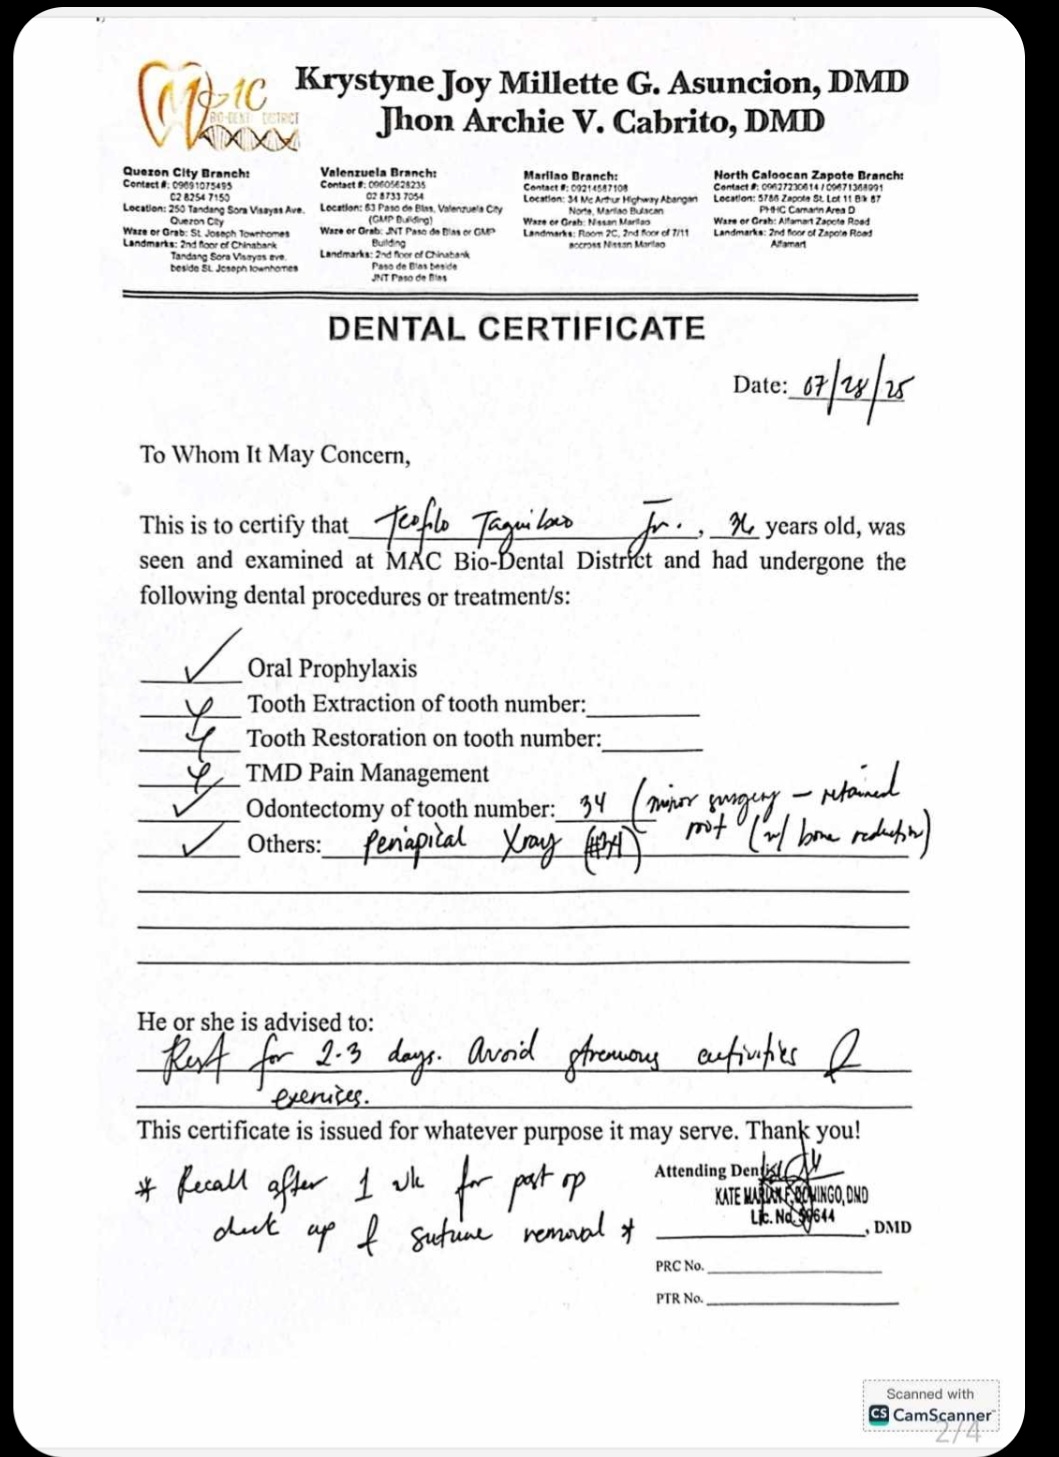 MAC
BIO-DENTAL DISTRICT
Krystyne Joy Millette G. Asuncion, DMD
Jhon Archie V. Cabrito, DMD
Quezon City Branch:
Contact #: 09691075495
02 8254 7150
Location: 250 Tandang Sora Visayas Ave.
Quezon City
Waze or Grab: St. Joseph Townhomes
Landmarks: 2nd floor of Chinabank
Tandang Sora Visayas ave.
beside St. Joseph townhomes
Valenzuela Branch:
Contact #: 09605628235
02 8733 7054
Location: 53 Paso de Blas, Valenzuela City
(GMP Building)
Waze or Grab: JNT Paso de Blas or GMP
Building
Landmarks: 2nd floor of Chinabank
Paso de Blas beside
JNT Paso de Blas
Marilao Branch:
Contact #: 09214587108
Location: 34 Mc Arthur Highway Abangan
Norte, Marilao Bulacan
Waze or Grab: Nissan Marilao
Landmarks: Room 2C, 2nd floor of 7/11
accross Nissan Marilao
North Caloocan Zapote Branch:
Contact #: 09627230614 / 09671368991
Location: 5786 Zapote St. Lot 11 Blk 87
PHHC Camarin Area D
Waze or Grab: Alfamart Zapote Road
Landmarks: 2nd floor of Zapote Road
Alfamart
DENTAL CERTIFICATE
Date: 07/28/25
To Whom It May Concern,
This is to certify that Teofilo Taquilao Jr., years old, was
seen and examined at MAC Bio-Dental District and had undergone the
following dental procedures or treatment/s:
Oral Prophylaxis
Tooth Extraction of tooth number:
Tooth Restoration on tooth number:
TMD Pain Management
Odontectomy of tooth number: 34 (minor surgery – retained
root (w/ bone reduction)
Others: Periapical Xray (#34)
He or she is advised to:
Rest for 2-3 days. Avoid strenuous activities &
exercises.
This certificate is issued for whatever purpose it may serve. Thank you!
* Recall after 1 wk for post op
check up & suture removal *
Attending Dentist
KATE MARIAN F. DOMINGO, DMD
Lic. No.
, DMD
PRC No.
PTR No.
Scanned with
CS CamScanner
2/4